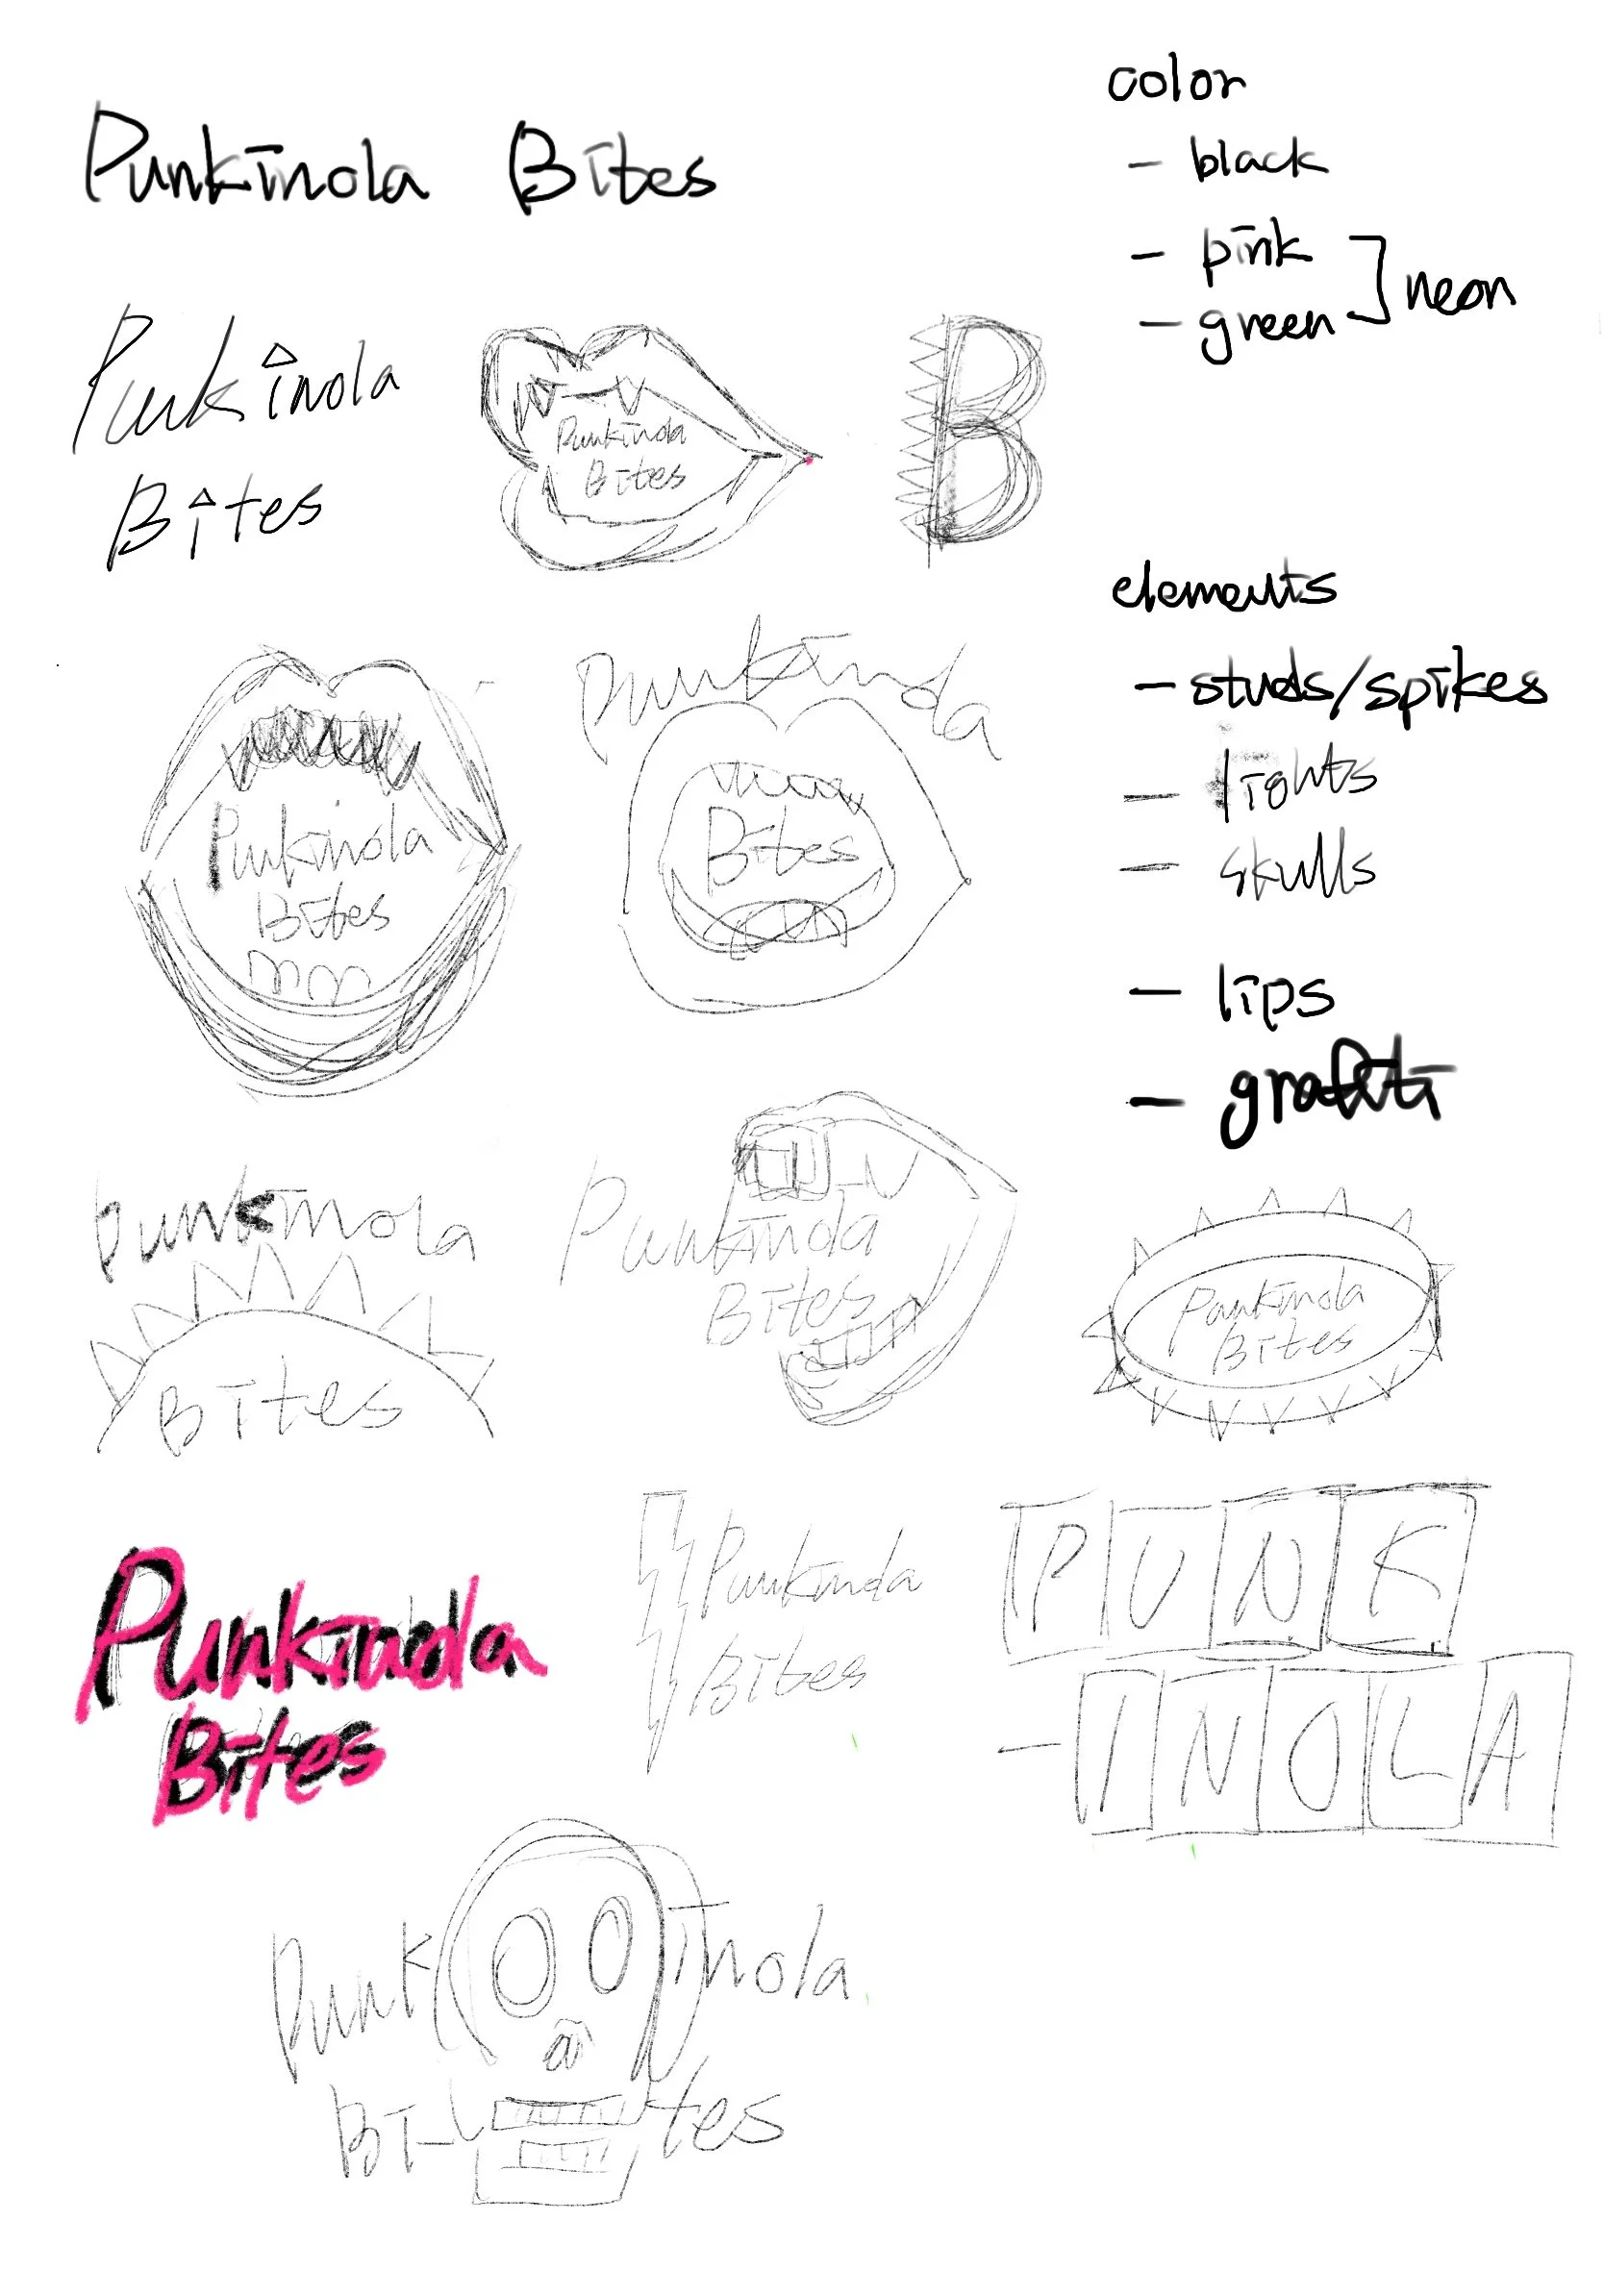 Punkinola Bites
color
- black
- pink
- green
neon
Punkinola
Bites
Punkinola
Bites
B
elements
- studs/spikes
- lights
- skulls
- lips
- grafiti
Punkinola
Bites
Punkinola
Bites
Punkinola
Bites
Punkinola
Bites
Punkinola
Bites
Punkinola
Bites
Punkinola
Bites
PUNK
-INOLA
Punk inola
Bi-tes